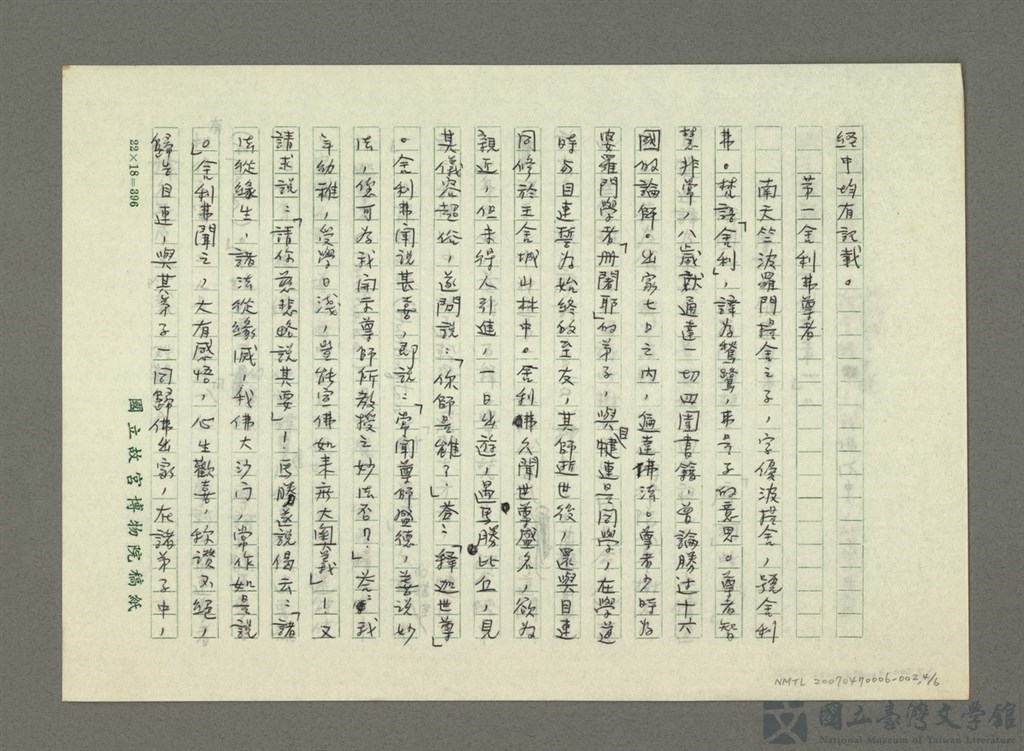 經中均有記載。
第一舍利弗尊者
南天竺波羅門提舍之子，字優波提舍，號舍利
弗。梵語「舍利」，譯為鶖鷺，弗是子的意思。尊者智
慧非常，八歲就通達一切四圍書籍，曾論勝過十六
國的論師。出家七日之內，遍達佛法。尊者少時為
婆羅門學者「刪闍耶」的弟子，與目犍連是同學，在學道
時與目連誓為始終的至友，其師逝世後，還與目連
同修於王舍城山林中。舍利佛久聞世尊盛名，欲為
親近，但未得人引進，一日出遊，遇馬勝比丘，見
其儀容超俗，遂問說：「你師是誰？」答：「釋迦世尊」
。舍利弗聞說甚喜，即說：「常聞尊師盛德，善說妙
法，您可為我開示尊師所教授之妙法否？」答：「我
年幼稚，受學日淺，豈能宣佛如來所大奧義」！又
請求說：「請你慈悲略說其要」！馬勝遂說偈云：「諸
法從緣生，諸法從緣滅，我佛大沙門，常作如是說
。」舍利弗聞之，大有感悟，心生歡喜，称讚不絕，
歸告目連，與其弟子一同歸佛出家，在諸弟子中，
22×18=396
國立故宮博物院稿紙
NMTL 20070470006-002,4/6
國立臺灣文學館
National Museum of Taiwan Literature